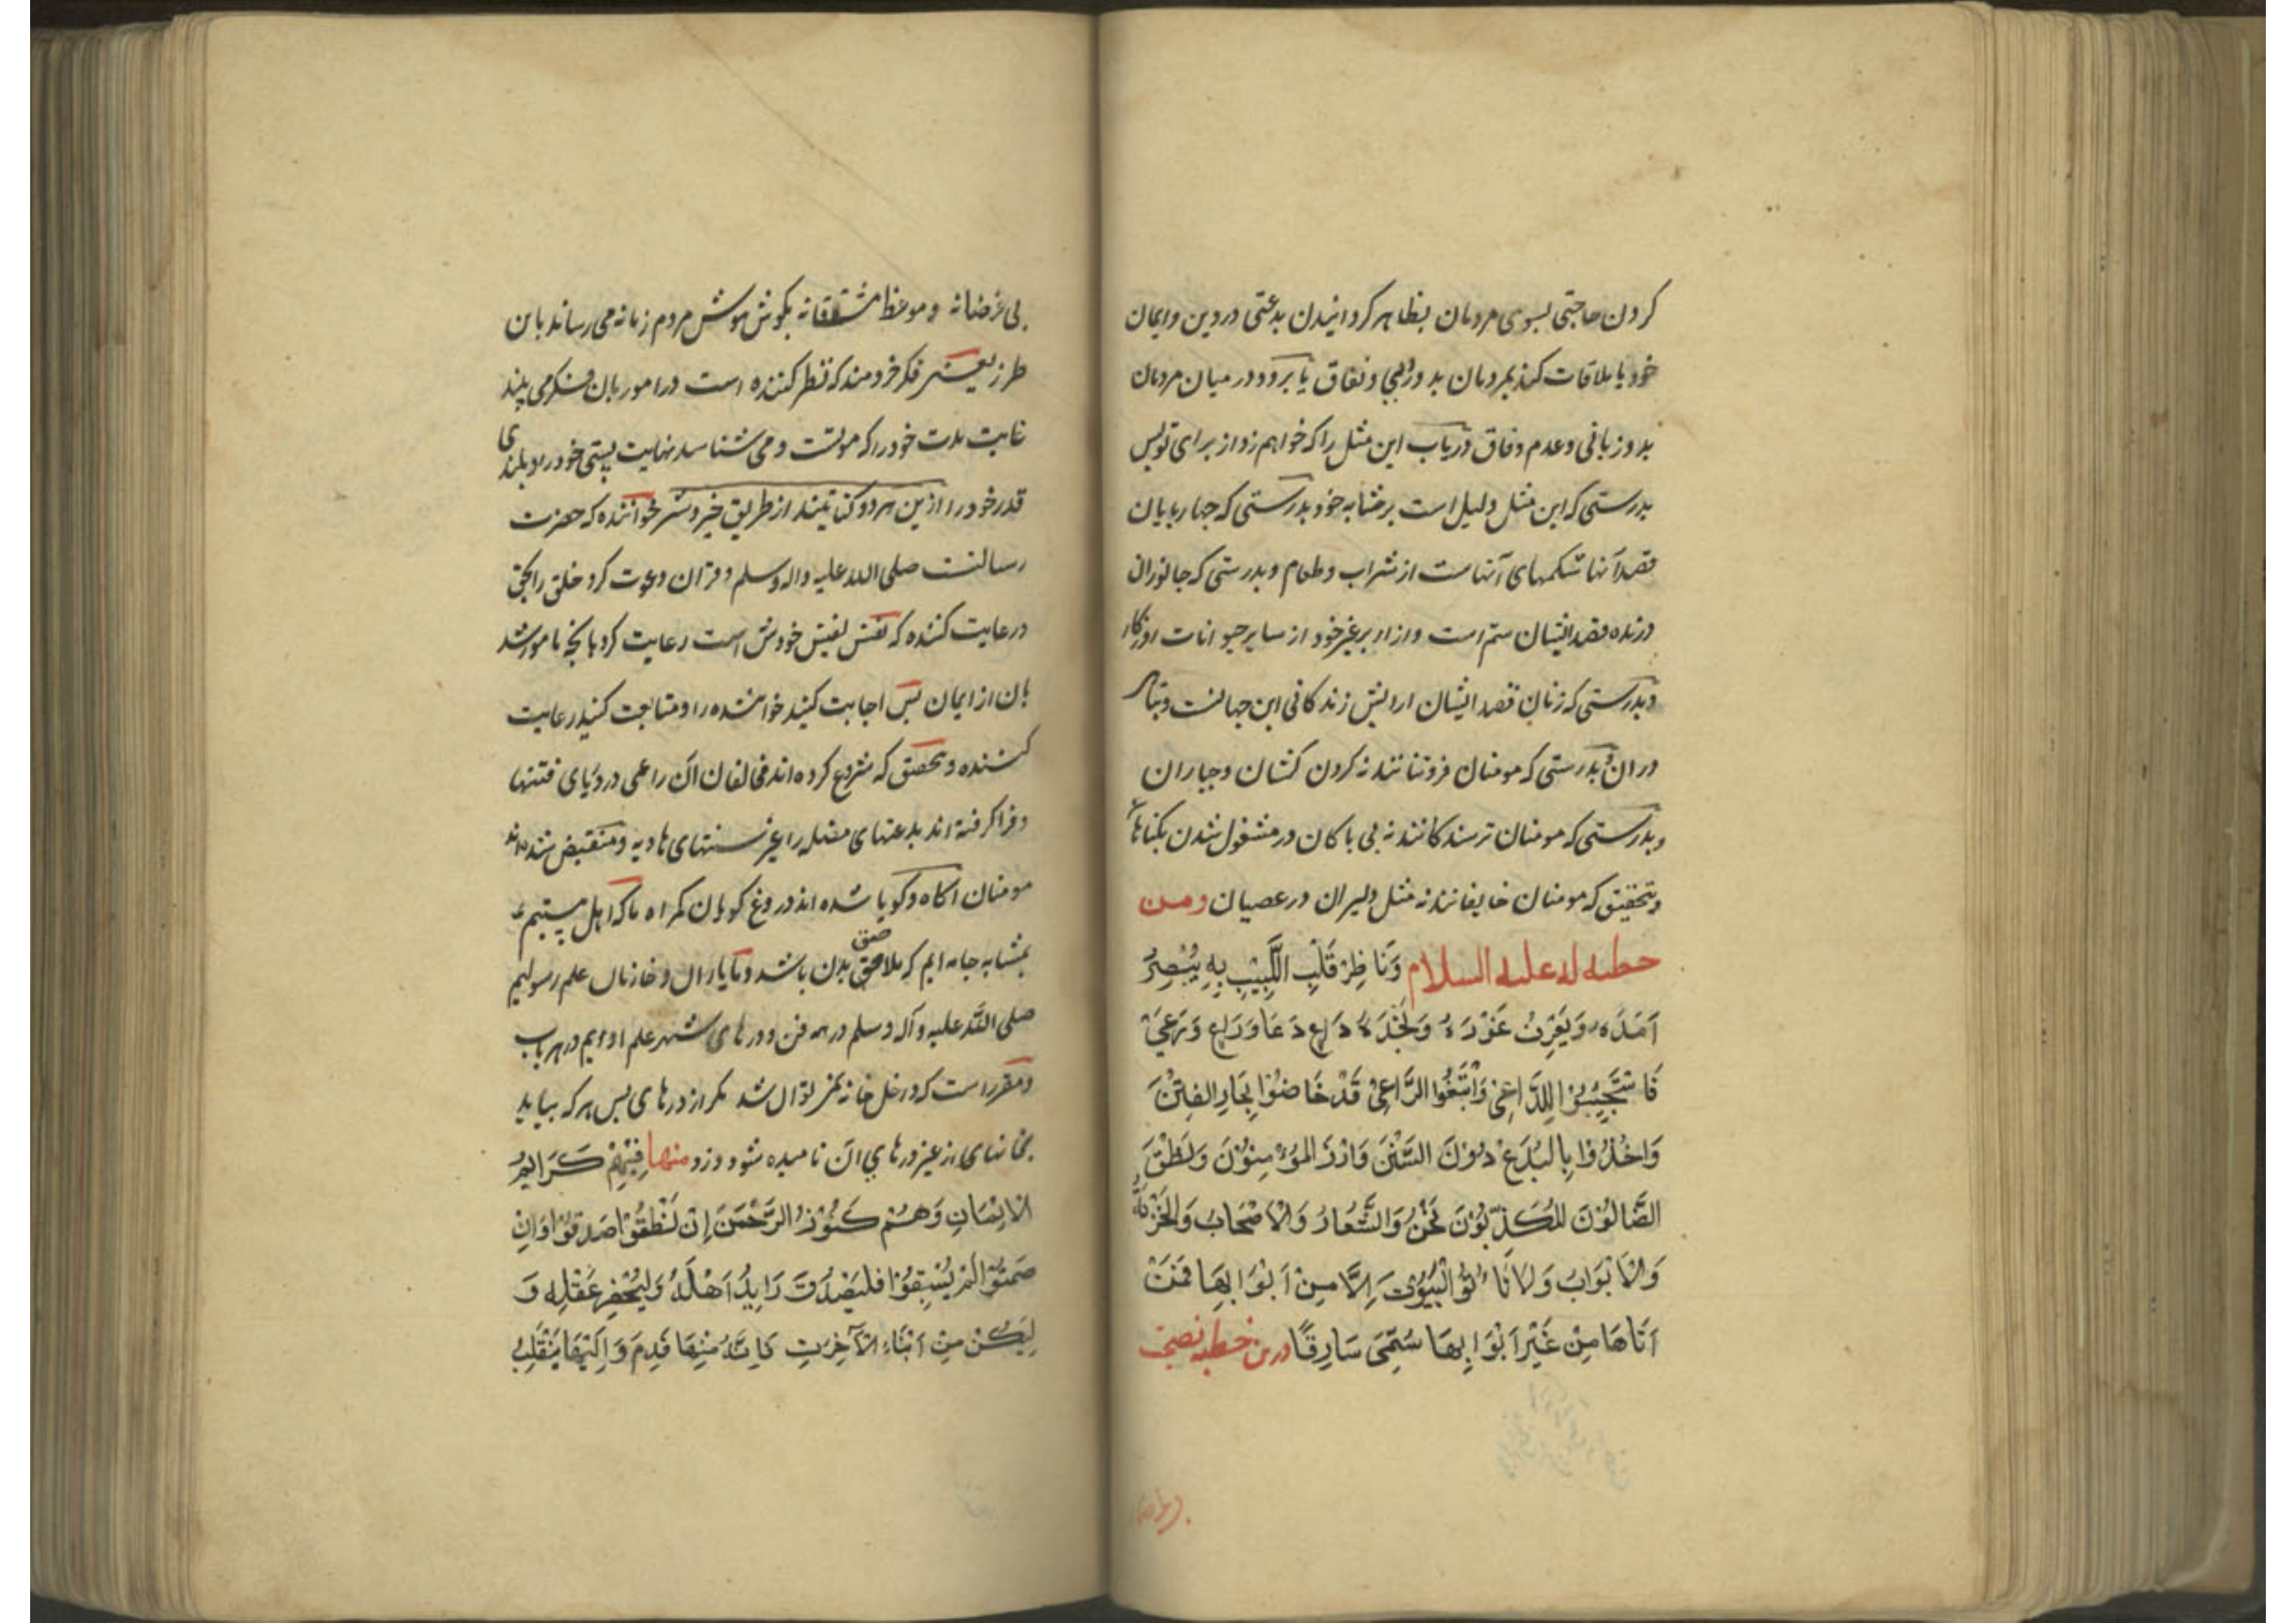 کردن حاجتی بسوی مردمان بظاهر کردانیدن بدعتی در دین و ایمان
خود یا ملاقات کند بمردمان بدوروئی و نفاق یا برود در میان مردمان
بدو زبانی و عدم وفاق دریاب این مثل را که خواهم زد از برای تو پس
بدرستی که این مثل دلیل است بر مشابه خود بدرستی که چهارپایان
قصد آنها شکمهای آنهاست از شراب و طعام و بدرستی که جانوران
درنده قصد ایشان ستم است و ازار بر غیر خود از سایر حیوانات روزکار
و بدرستی که زنان قصد ایشان ارایش زندکانی این جهانست و تباهی
در ان و بدرستی که مومنان فروتنانند نه کردن کشان و جباران
و بدرستی که مومنان ترسندکانند نه بی باکان در مشغول شدن بکناهان
و بتحقیق که مومنان خایفانند نه مثل دلیران در عصیان ومن
خطبه له علیه السلام وَنَاظِرُ قَلْبِ اللَّبِیْبِ بِهِ یُبْصِرُ
اَمَدَهُ وَیَعْرِفُ غَوْرَهُ وَنَجْدَهُ دَاعٍ دَعَا وَرَاعٍ رَعَیٰ
فَاسْتَجِیْبُوْا لِلدَّاعِیْ وَاتَّبِعُوا الرَّاعِیْ قَدْ خَاضُوْا بِحَارِ الْفِتَنِ
وَاخَذُوْا بِالْبُدَعِ دُوْنَ السُّنَنِ وَاَرَزَ الْمُؤْمِنُوْنَ وَنَطَقَ
الضَّالُوْنَ الْمُکَذِّبُوْنَ نَحْنُ وَالشِّعَارُ وَالْاَصْحَابُ وَالْخَزَنَةُ
وَالْاَبْوَابُ وَلَا تَأْتُوا الْبُیُوْتَ اِلَّا مِنْ اَبْوَابِهَا فَمَنْ
اَتَاهَا مِنْ غَیْرِ اَبْوَابِهَا سُمِّیَ سَارِقًا درین خطبه نصیحت
بی غرضانه و موعظ مشتاقانه بکوش هوش مردم زمانه می رساند باین
طرز یعنی فکر خردمند که نظر کننده است در امور بان فکر می بیند
غایت مدت خود را که موتست و می شناسد نهایت پستی خود و بلندی
قدر خود را ازین هر دو کنایتند از طریق خیر و شر خواننده که حضرت
رسالتست صلی الله علیه واله وسلم و قران دعوت کرد خلق را بحق
و رعایت کننده که نفس نفیس خودش است رعایت کرد بانچه مامور شد
بان از ایمان پس اجابت کنید خواننده را و متابعت کنید رعایت
کننده و بتحقیق که شروع کرده اند مخالفان آن راعی در دریای فتنها
و فرا کرفته اند بدعتهای مضله را غیر سنتهای هادیه و منقبض شده اند
مومنان اکاه و کویا شده اند دروغ کویان کمراه ما که اهل بیتیم
بمشابه جامه ایم که ملاصق بدن باشد و ما یاران و خازنان علم رسولیم
صلی الله علیه وآله وسلم در همه فن و درهای شهر علم اوییم در هر باب
و مقرر است که درخل خانه نمی توان شد مکر از درهای پس هر که بیاید
بخانهای از غیر درهای آن نامیده شود دزد منها فِیْهِمْ کَرَایِمُ
الْاِیْمَانِ وَهُمْ کُنُوْزُ الرَّحْمٰنِ اِنْ نَطَقُوْا صَدَقُوْا وَاِنْ
صَمَتُوْا لَمْ یُسْبَقُوْا فَلْیَصْدُقْ رَایِدٌ اَهْلَهُ وَلْیُحْضِرْ عَقْلَهُ وَ
لِیَکُنْ مِنْ اَبْنَاءِ الْآخِرَتِ فَاِنَّهُ مِنْهَا قَدِمَ وَاِلَیْهَا یَنْقَلِبُ